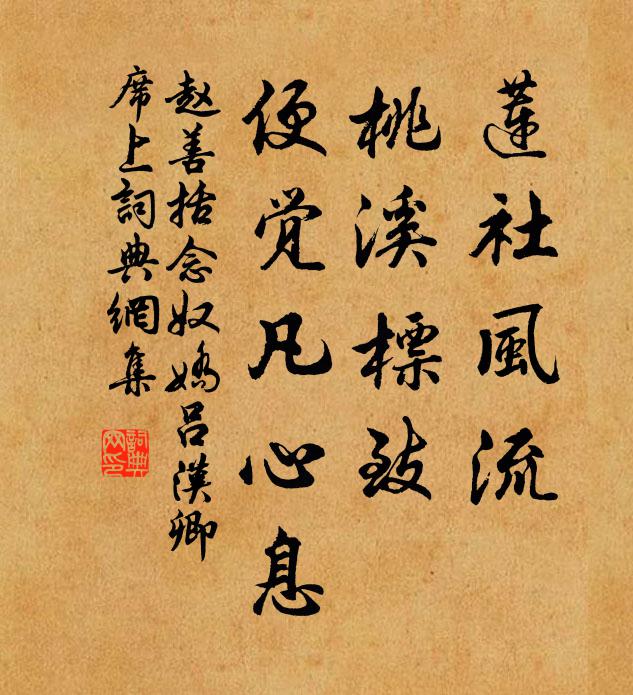 蓮社風流
桃溪標致
便觉凡心息
赵善括念奴嬌吕漢卿
席上詞典網集
詞典網印